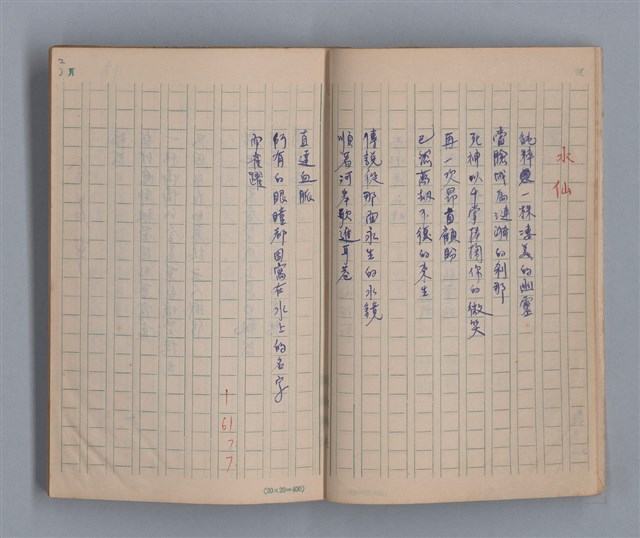 水仙
純粹是一株淒美的幽靈
當臉城為漣漪的剎那
死神以手掌摑你的微笑
再一次昂首顧盼
已然萬劫不復的來生
傳說從那面永生的水鏡
順著河岸歌進耳巷
直達血脈
所有的眼瞳都因寫在水上的名字
而雀躍
61
7
7
2
頁
(20×20=400)